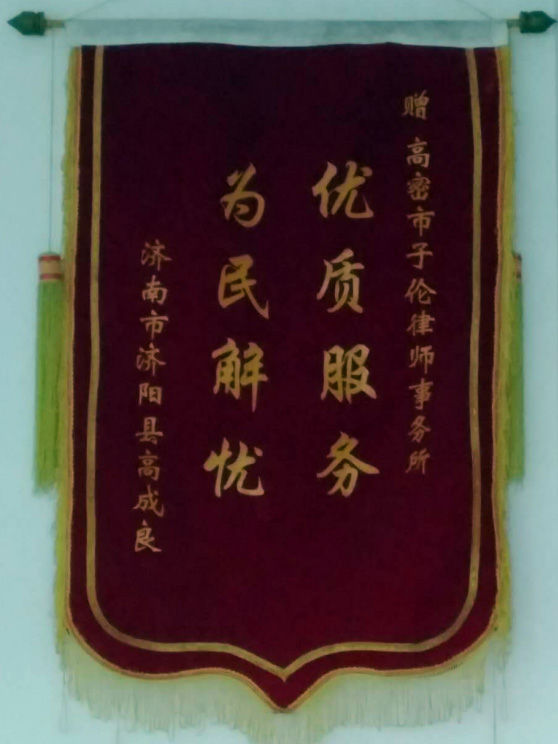 赠 高密市子伦律师事务所
优质服务
为民解忧
济南市济阳县高成良